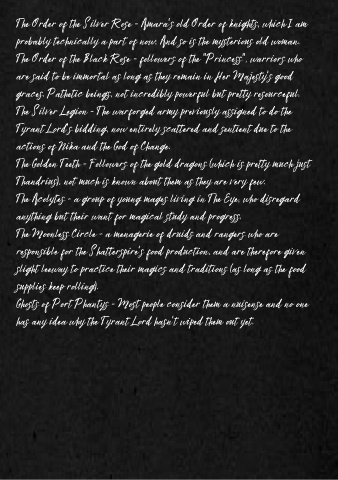 The Order of the Silver Rose - Amara's old Order of knights, which I am
probably technically a part of now. And so is the mysterious old woman.
The Order of the Black Rose - followers of the "Princess", warriors who
are said to be immortal as long as they remain in Her Majesty's good
graces. Pathetic beings, not incredibly powerful but pretty resourceful.
The Silver Legion - The warforged army previously assigned to do the
Tyrant Lord's bidding, now entirely scattered and sentient due to the
actions of Nika and the God of Change.
The Golden Teeth - Followers of the gold dragons (which is pretty much just
Thandrius), not much is known about them as they are very few.
The Acolytes - a group of young mages living in The Eye, who disregard
anything but their want for magical study and progress.
The Moonless Circle - a menagerie of druids and rangers who are
responsible for the Shatterspire's food production, and are therefore given
slight leeway to practice their magics and traditions (as long as the food
supplies keep rolling).
Ghosts of Port Phantys - Most people consider them a nuisense and no one
has any idea why the Tyrant Lord hasn't wiped them out yet.